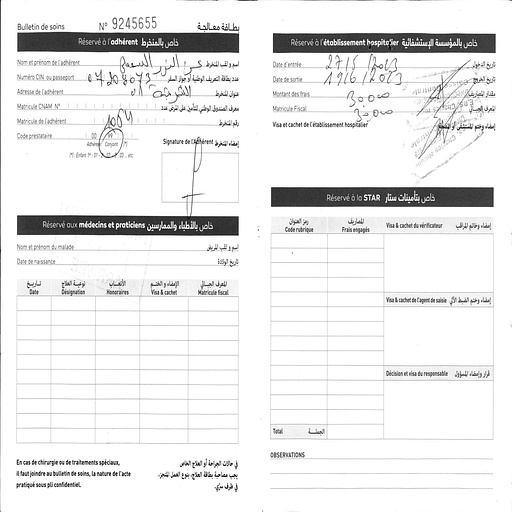 Bulletin de soins N° 9245655 بطاقة معالجة
Réservé à l'adhérent خاص بالمنخرط
Nom et prénom de l'adhérent اسم و لقب المنخرط
Numéro CIN ou passeport عدد بطاقة التعريف الوطنية أو جواز السفر
Adresse de l'adhérent عنوان المنخرط
Matricule CNAM N° معرف الصندوق الوطني للتأمين على المرض عدد
Matricule de l'adhérent 1054 رقم المنخرط
Code prestataire 00 99
Adhérent Conjoint (*)
(*): Enfant 1er : 01 - 02 - 03 ... etc
Signature de l'Adhérent إمضاء المنخرط
Réservé aux médecins et praticiens خاص بالأطباء والممارسين
Nom et prénom du malade اسم و لقب المريض
Date de naissance تاريخ الولادة
تاريخ نوعية العلاج الأتعاب الإمضاء و الختم المعرف الجبائي
Date Désignation Honoraires Visa & cachet Matricule fiscal
En cas de chirurgie ou de traitements spéciaux,
il faut joindre au bulletin de soins, la nature de l'acte
pratiqué sous pli confidentiel.
في حالات الجراحة أو العلاج الخاص
يجب مصاحبة بطاقة العلاج، بنوع العمل المنجز،
في ظرف سري.
Réservé à l'établissement hospitalier خاص بالمؤسسة الإستشفائية
Date d'entrée 27/5/2013 تاريخ الدخول
Date de sortie 19/6/2013 تاريخ الخروج
Montant des frais 30.000 مقدار المصاريف
Matricule Fiscal 30.000
Visa et cachet de l'établissement hospitalier
Réservé à la STAR خاص بتأمينات ستار
رمز العنوان المصاريف
Code rubrique Frais engagés
Visa & cachet du vérificateur إمضاء وخاتم المراقب
Visa & cachet de l'agent de saisie إمضاء وختم الضبط الآلي
Décision et visa du responsable قرار وإمضاء المسؤول
Total الجملة
OBSERVATIONS